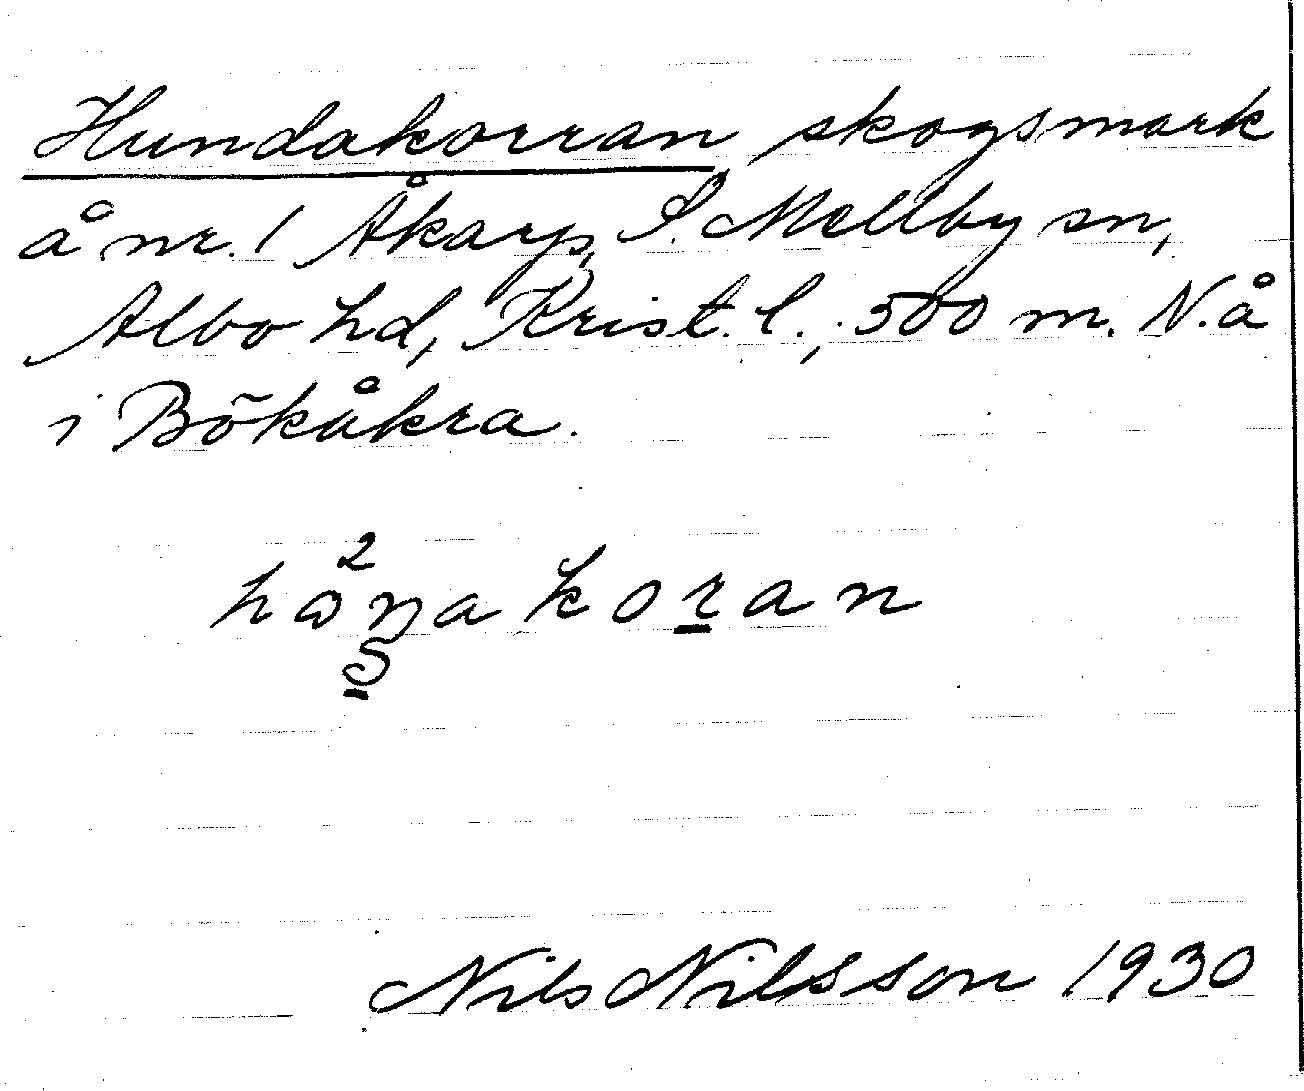 Hundakorran skogsmark
å nr. 1 Åkarp, S. Mellby sn,
Albo hd, Krist. l., 500 m. N. å
i Bökåkra.
2
koran
S
Nils Nilsson 1930